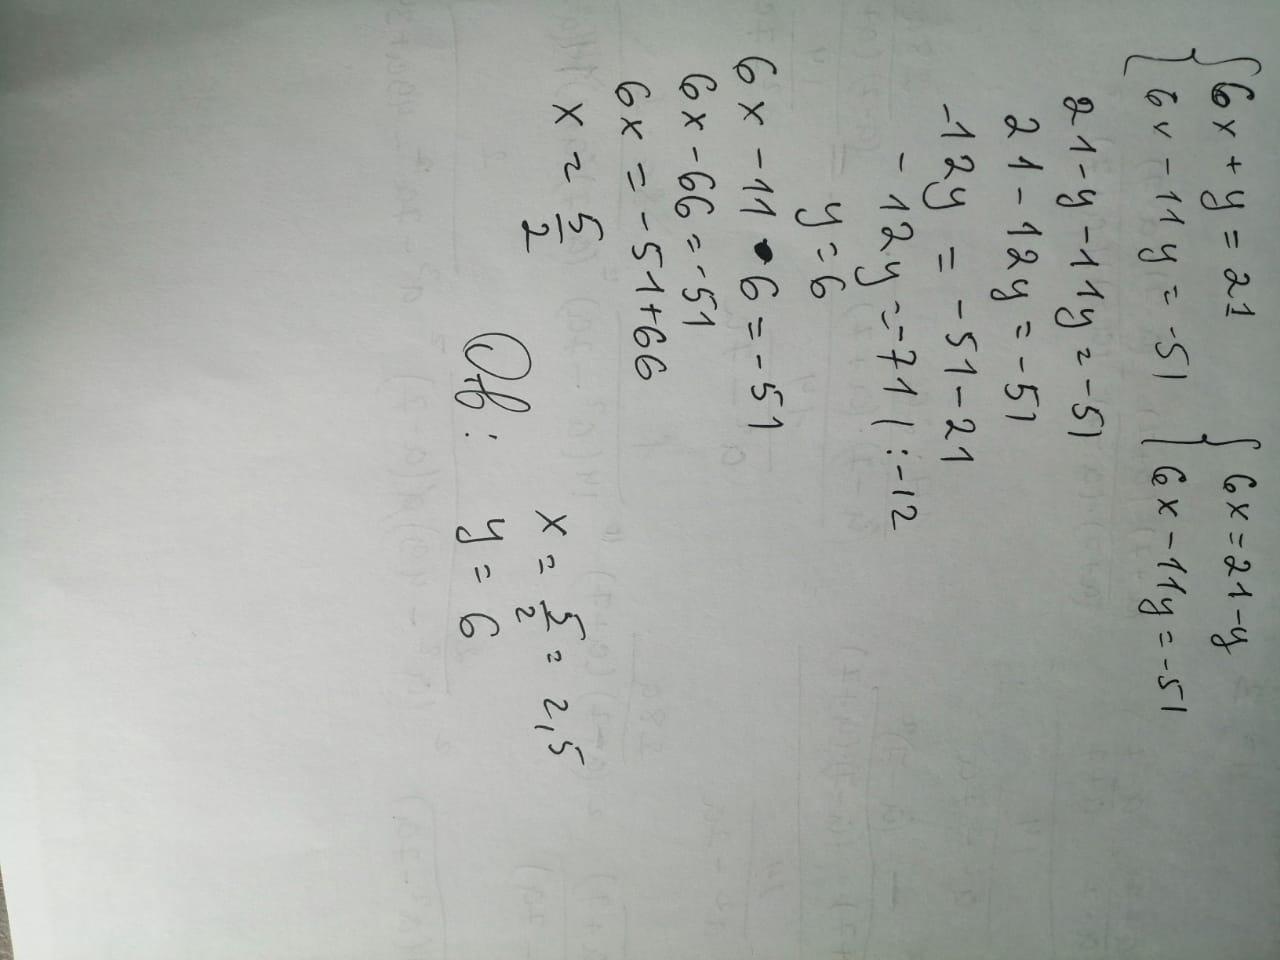 {6x + y = 21 {6x = 21 - y
{6x - 11y = -51 {6x - 11y = -51
21 - y - 11y = -51
21 - 12y = -51
-12y = -51 - 21
-12y = -71 | : -12
y = 6
6x - 11 • 6 = -51
6x - 66 = -51
6x = -51 + 66
x = 5/2
Отв: x = 5/2 = 2,5
y = 6